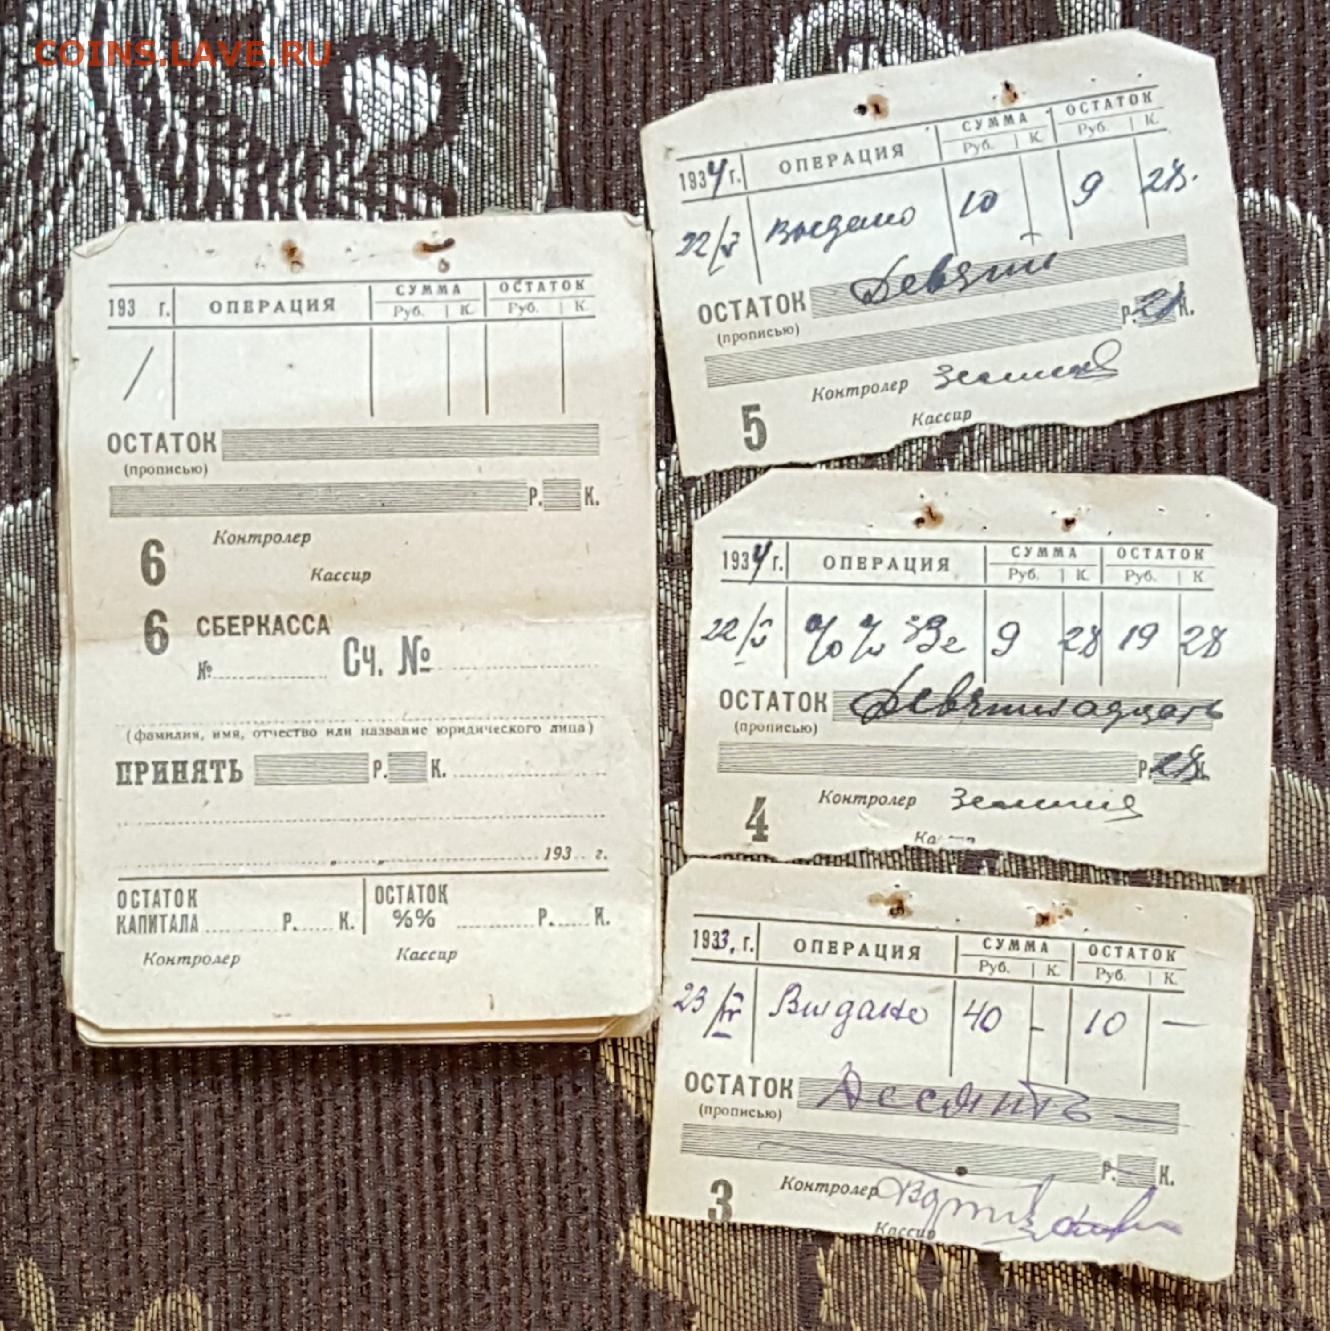 COINS.LAVE.RU
193 г. ОПЕРАЦИЯ СУММА ОСТАТОК
Руб. К. Руб. К.
ОСТАТОК
(прописью)
Р. К.
Контролер
6 Кассир
6 СБЕРКАССА
№ Сч. №
(фамилия, имя, отчество или название юридического лица)
ПРИНЯТЬ Р. К.
193 г.
ОСТАТОК КАПИТАЛА Р. К. ОСТАТОК %% Р. К.
Контролер Кассир
1934 г. ОПЕРАЦИЯ СУММА ОСТАТОК
Руб. К. Руб. К.
22/V Выдано 10 9 28.
ОСТАТОК Девять
(прописью)
Р. К.
Контролер
5 Кассир
1934 г. ОПЕРАЦИЯ СУММА ОСТАТОК
Руб. К. Руб. К.
22/V %% 9 28 19 28
ОСТАТОК Девятнадцать
(прописью)
Р. 28 К.
Контролер
4 Кассир
1933 г. ОПЕРАЦИЯ СУММА ОСТАТОК
Руб. К. Руб. К.
23 Выдано 40 - 10 —
ОСТАТОК Десять —
(прописью)
Р. К.
Контролер
3 Кассир